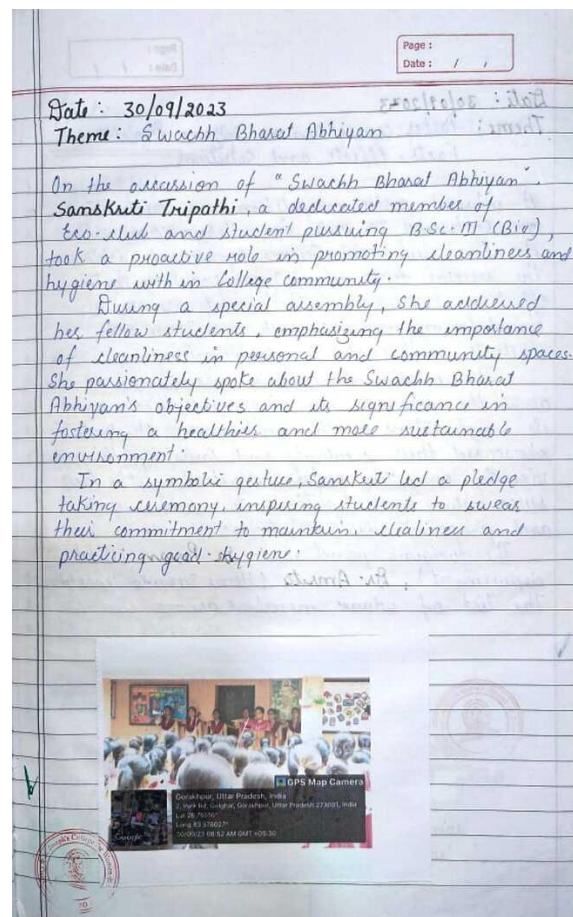 Page :
Date : / /
Date : 30/09/2023
Theme : Swachh Bharat Abhiyan
On the occassion of "Swachh Bharat Abhiyan".
Sanskruti Tripathi, a dedicated member of
Eco-club and student pursuing B.Sc. III (Bio),
took a proactive role in promoting cleanliness and
hygiene with in College community.
During a special assembly, She addressed
her fellow students, emphasizing the importance
of cleanliness in personal and community spaces.
She passionately spoke about the Swachh Bharat
Abhiyan's objectives and its significance in
fostering a healthier and more sustainable
environment.
In a symbolic gesture, Sanskruti led a pledge
taking ceremony, inspiring students to swear
their commitment to maintain, clealiness and
practicing good hygiene.
GPS Map Camera
Gorakhpur, Uttar Pradesh, India
2, Park Rd, Golghar, Gorakhpur, Uttar Pradesh 273001, India
Lat
Long
30/09/23 08:52 AM GMT +05:30
Google